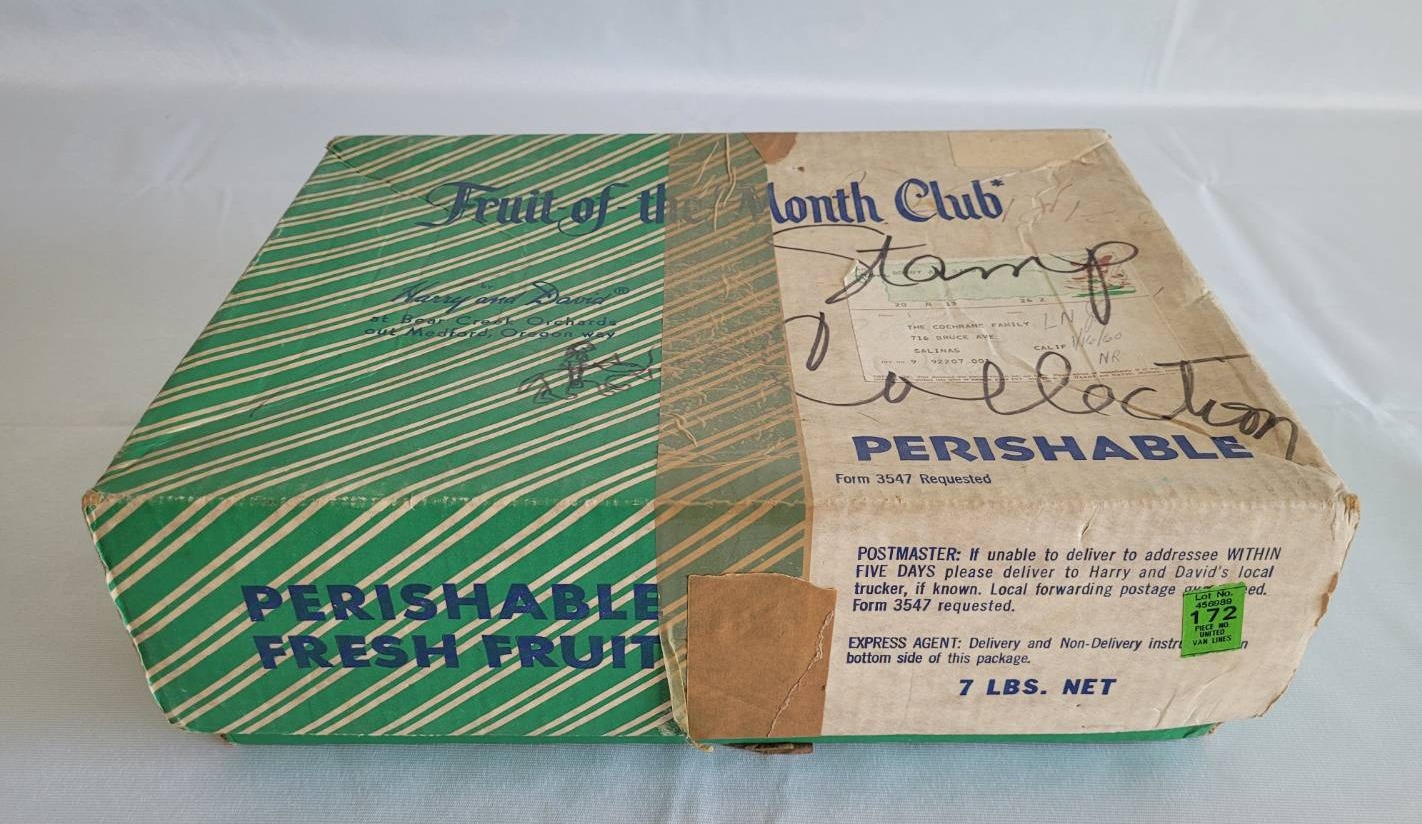 Fruit of the Month Club*
by
Harry and David®
at Bear Creek Orchards
out Medford, Oregon way
Stamp
Collection
20 N 13 26 2
THE COCHRANE FAMILY
716 BRUCE AVE
SALINAS CALIF
9 92207 001
LN
NR
PERISHABLE
Form 3547 Requested
PERISHABLE
FRESH FRUIT
POSTMASTER: If unable to deliver to addressee WITHIN
FIVE DAYS please deliver to Harry and David's local
trucker, if known. Local forwarding postage
Form 3547 requested.
EXPRESS AGENT: Delivery and Non-Delivery
bottom side of this package.
7 LBS. NET
Lot No.
456989
172
PIECE NO.
UNITED
VAN LINES